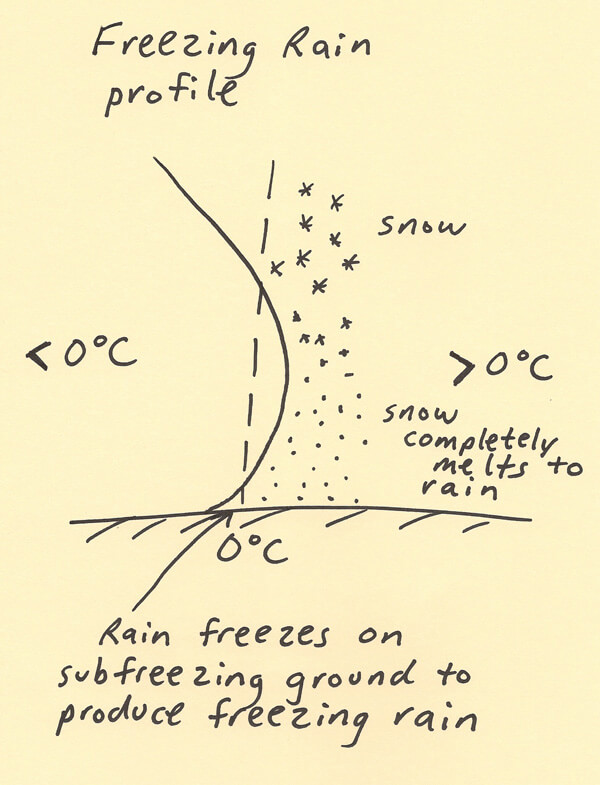 Freezing Rain
profile
snow
< 0°C
> 0°C
snow
completely
melts to
rain
0°C
Rain freezes on
subfreezing ground to
produce freezing rain